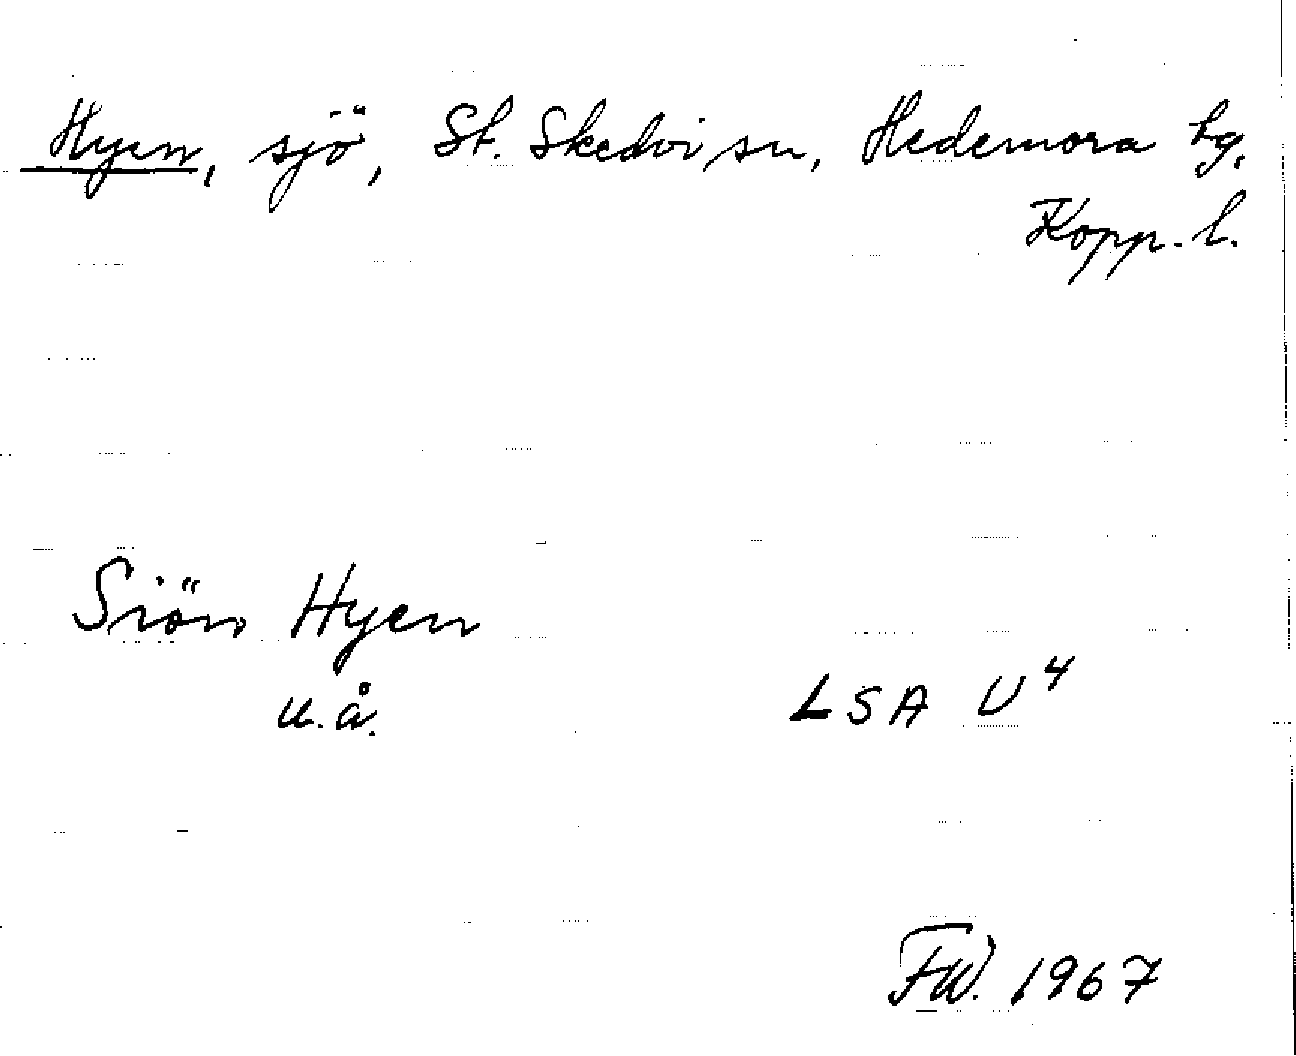 Hyen, sjö, St. Skedvi sn, Hedemora tg,
Kopp. l.
Siön Hyen
u.å.
LSA U4
FW. 1967